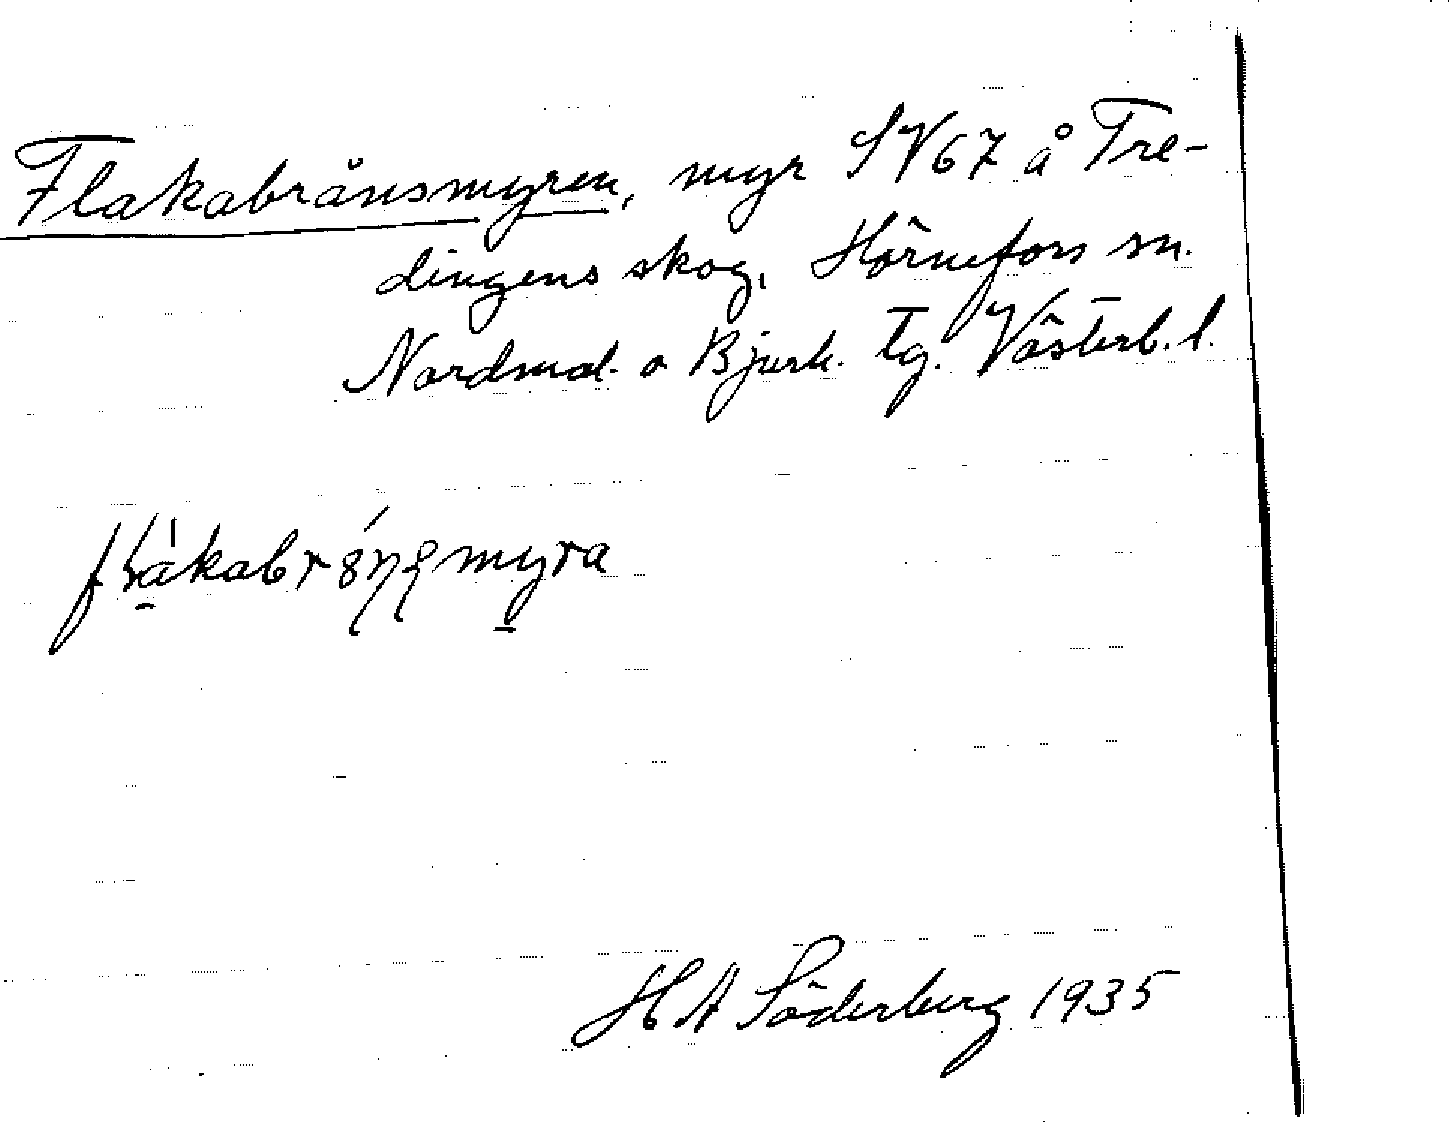 Flakabrånsmyren, myr SV67 å Tre-
dingens skog, Hörnefors sn.
Nordmal. o Bjurh. tg. Västerb. l.
H A Söderberg 1935